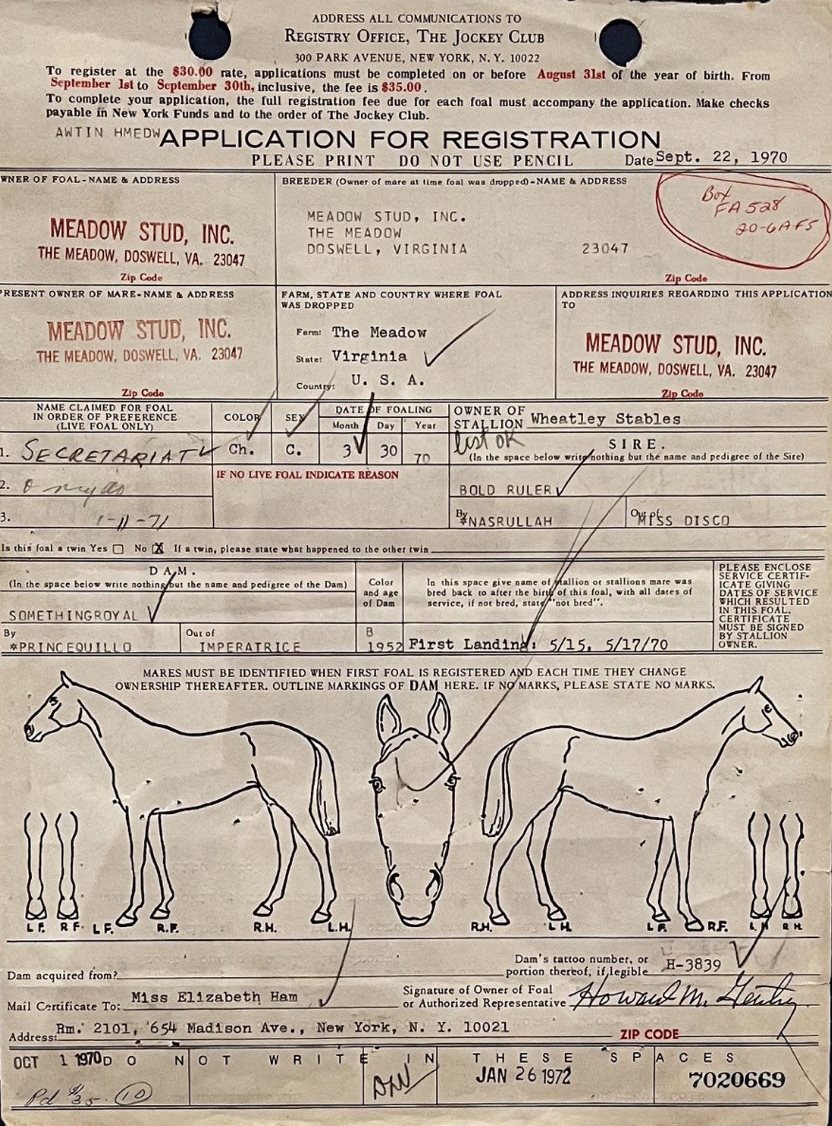 ADDRESS ALL COMMUNICATIONS TO
REGISTRY OFFICE, THE JOCKEY CLUB
300 PARK AVENUE, NEW YORK, N. Y. 10022
To register at the $30.00 rate, applications must be completed on or before August 31st of the year of birth. From
September 1st to September 30th, inclusive, the fee is $35.00.
To complete your application, the full registration fee due for each foal must accompany the application. Make checks
payable in New York Funds and to the order of The Jockey Club.
AWTIN HMEDW
APPLICATION FOR REGISTRATION
PLEASE PRINT DO NOT USE PENCIL
Date Sept. 22, 1970
WNER OF FOAL-NAME & ADDRESS
MEADOW STUD, INC.
THE MEADOW, DOSWELL, VA. 23047
Zip Code
BREEDER (Owner of mare at time foal was dropped)-NAME & ADDRESS
MEADOW STUD, INC.
THE MEADOW
DOSWELL, VIRGINIA 23047
Zip Code
Box
FA528
20-6AF5
PRESENT OWNER OF MARE-NAME & ADDRESS
MEADOW STUD, INC.
THE MEADOW, DOSWELL, VA. 23047
Zip Code
FARM, STATE AND COUNTRY WHERE FOAL
WAS DROPPED
Farm: The Meadow
State: Virginia
Country: U. S. A.
ADDRESS INQUIRIES REGARDING THIS APPLICATION
TO
MEADOW STUD, INC.
THE MEADOW, DOSWELL, VA. 23047
Zip Code
NAME CLAIMED FOR FOAL
IN ORDER OF PREFERENCE
(LIVE FOAL ONLY)
1. SECRETARIAT
2.
3. 1-11-71
COLOR
Ch.
SEX
C.
DATE OF FOALING
Month Day Year
3 30 70
IF NO LIVE FOAL INDICATE REASON
OWNER OF
STALLION Wheatley Stables
list OK
SIRE.
(In the space below write nothing but the name and pedigree of the Sire)
BOLD RULER
By *NASRULLAH
Out of MISS DISCO
Is this foal a twin Yes No X If a twin, please state what happened to the other twin
DAM.
(In the space below write nothing but the name and pedigree of the Dam)
SOMETHINGROYAL
By *PRINCEQUILLO
Out of IMPERATRICE
Color
and age
of Dam
B
1952
In this space give name of stallion or stallions mare was
bred back to after the birth of this foal, with all dates of
service, if not bred, state "not bred".
First Landing: 5/15, 5/17/70
PLEASE ENCLOSE
SERVICE CERTIF-
ICATE GIVING
DATES OF SERVICE
WHICH RESULTED
IN THIS FOAL.
CERTIFICATE
MUST BE SIGNED
BY STALLION
OWNER.
MARES MUST BE IDENTIFIED WHEN FIRST FOAL IS REGISTERED AND EACH TIME THEY CHANGE
OWNERSHIP THEREAFTER. OUTLINE MARKINGS OF DAM HERE. IF NO MARKS, PLEASE STATE NO MARKS.
L F. R F. L F. R.F. R.H. L.H. R.H. L H. L F. R.F. L H. R H.
Dam acquired from?
Dam's tattoo number, or
portion thereof, if legible H-3839
Mail Certificate To: Miss Elizabeth Ham
Signature of Owner of Foal
or Authorized Representative Howard M. Gentry
Address: Rm. 2101, 654 Madison Ave., New York, N. Y. 10021
ZIP CODE
DO NOT WRITE IN THESE SPACES
OCT 1 1970
Pd $35. 10
JAN 26 1972
7020669